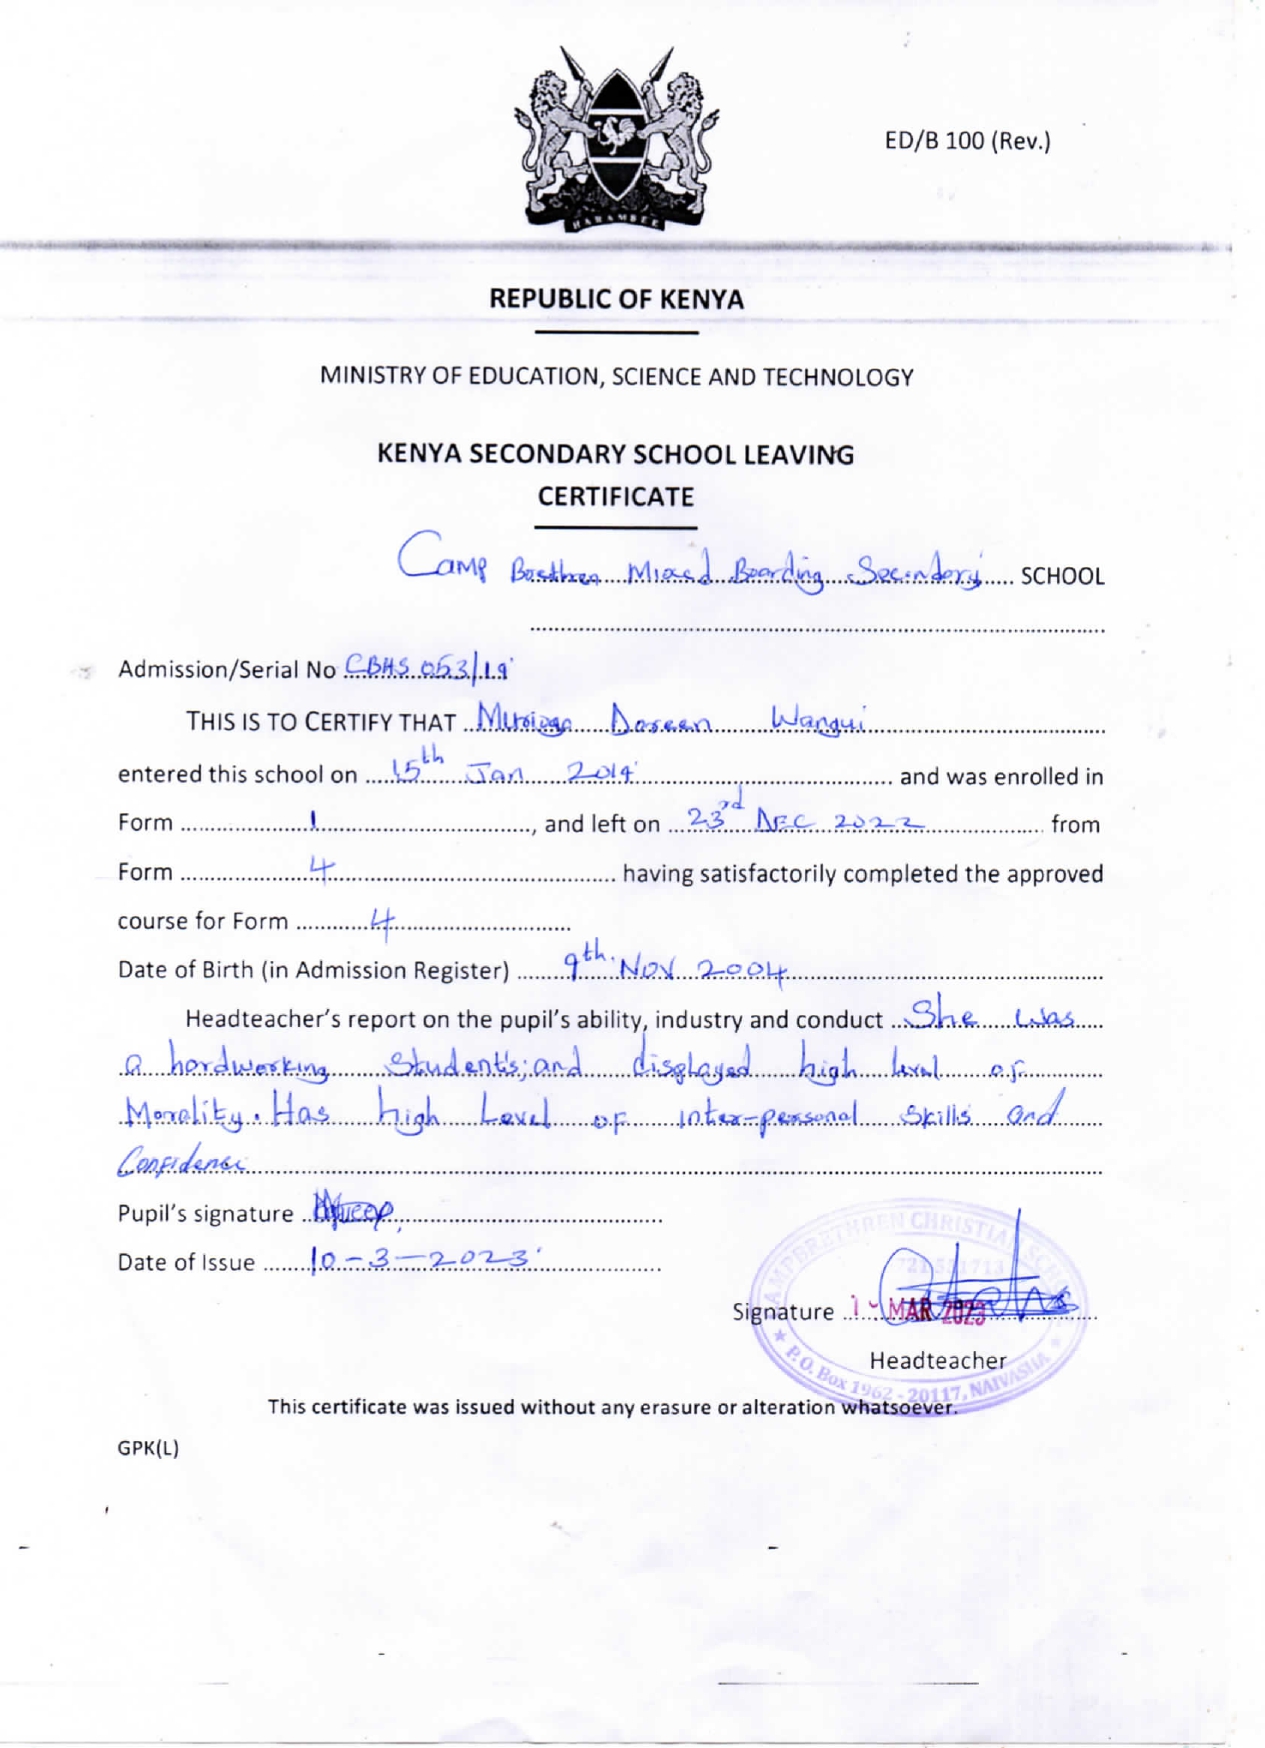 HARAMBEE
ED/B 100 (Rev.)
REPUBLIC OF KENYA
MINISTRY OF EDUCATION, SCIENCE AND TECHNOLOGY
KENYA SECONDARY SCHOOL LEAVING
CERTIFICATE
Camp Brethren Mixed Boarding Secondary SCHOOL
Admission/Serial No CBHS 053/19
THIS IS TO CERTIFY THAT Doreen Wangui
entered this school on 15th Jan 2019 and was enrolled in
Form 1, and left on 23rd DEC 2022 from
Form 4 having satisfactorily completed the approved
course for Form 4
Date of Birth (in Admission Register) 9th NOV 2004
Headteacher's report on the pupil's ability, industry and conduct She was
a hardworking Student's; and displayed high level of
Morality. Has high Level of inter-personal skills and
Confidence
Pupil's signature
Date of Issue 10-3-2023
CAMPBRETHREN CHRISTIAN
Signature MAR 2023
Headteacher
P.O. Box 1962 - 20117, NAIVASHA
This certificate was issued without any erasure or alteration whatsoever.
GPK(L)